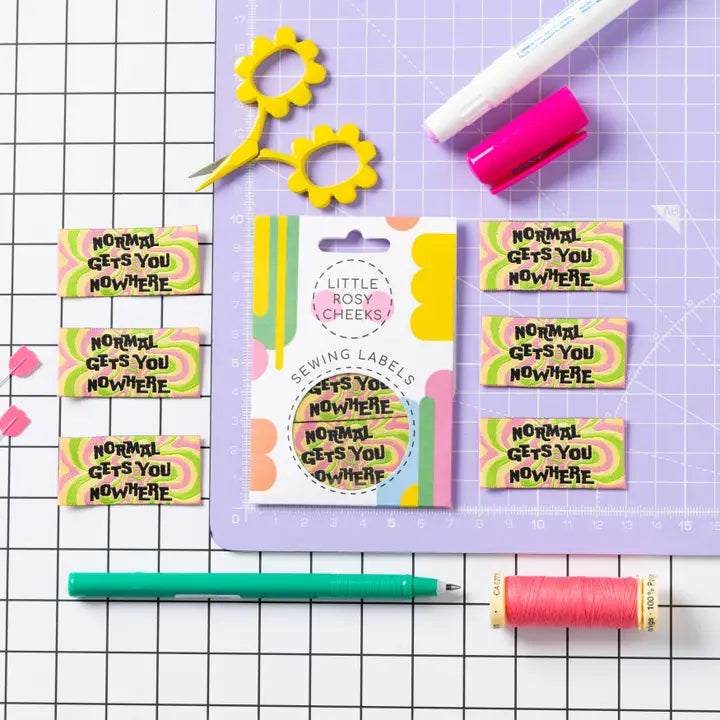 NORMAL
GETS YOU
NOWHERE
NORMAL
GETS YOU
NOWHERE
NORMAL
GETS YOU
NOWHERE
LITTLE
ROSY
CHEEKS
SEWING LABELS
GETS YOU
NOWHERE
NORMAL
GETS YOU
NOWHERE
NORMAL
GETS YOU
NOWHERE
NORMAL
GETS YOU
NOWHERE
NORMAL
GETS YOU
NOWHERE
10
9
8
7
6
5
4
3
2
1
0
1 2 3 4 5 6 7 8 9 10 11 12 13 14 15
100% Poly